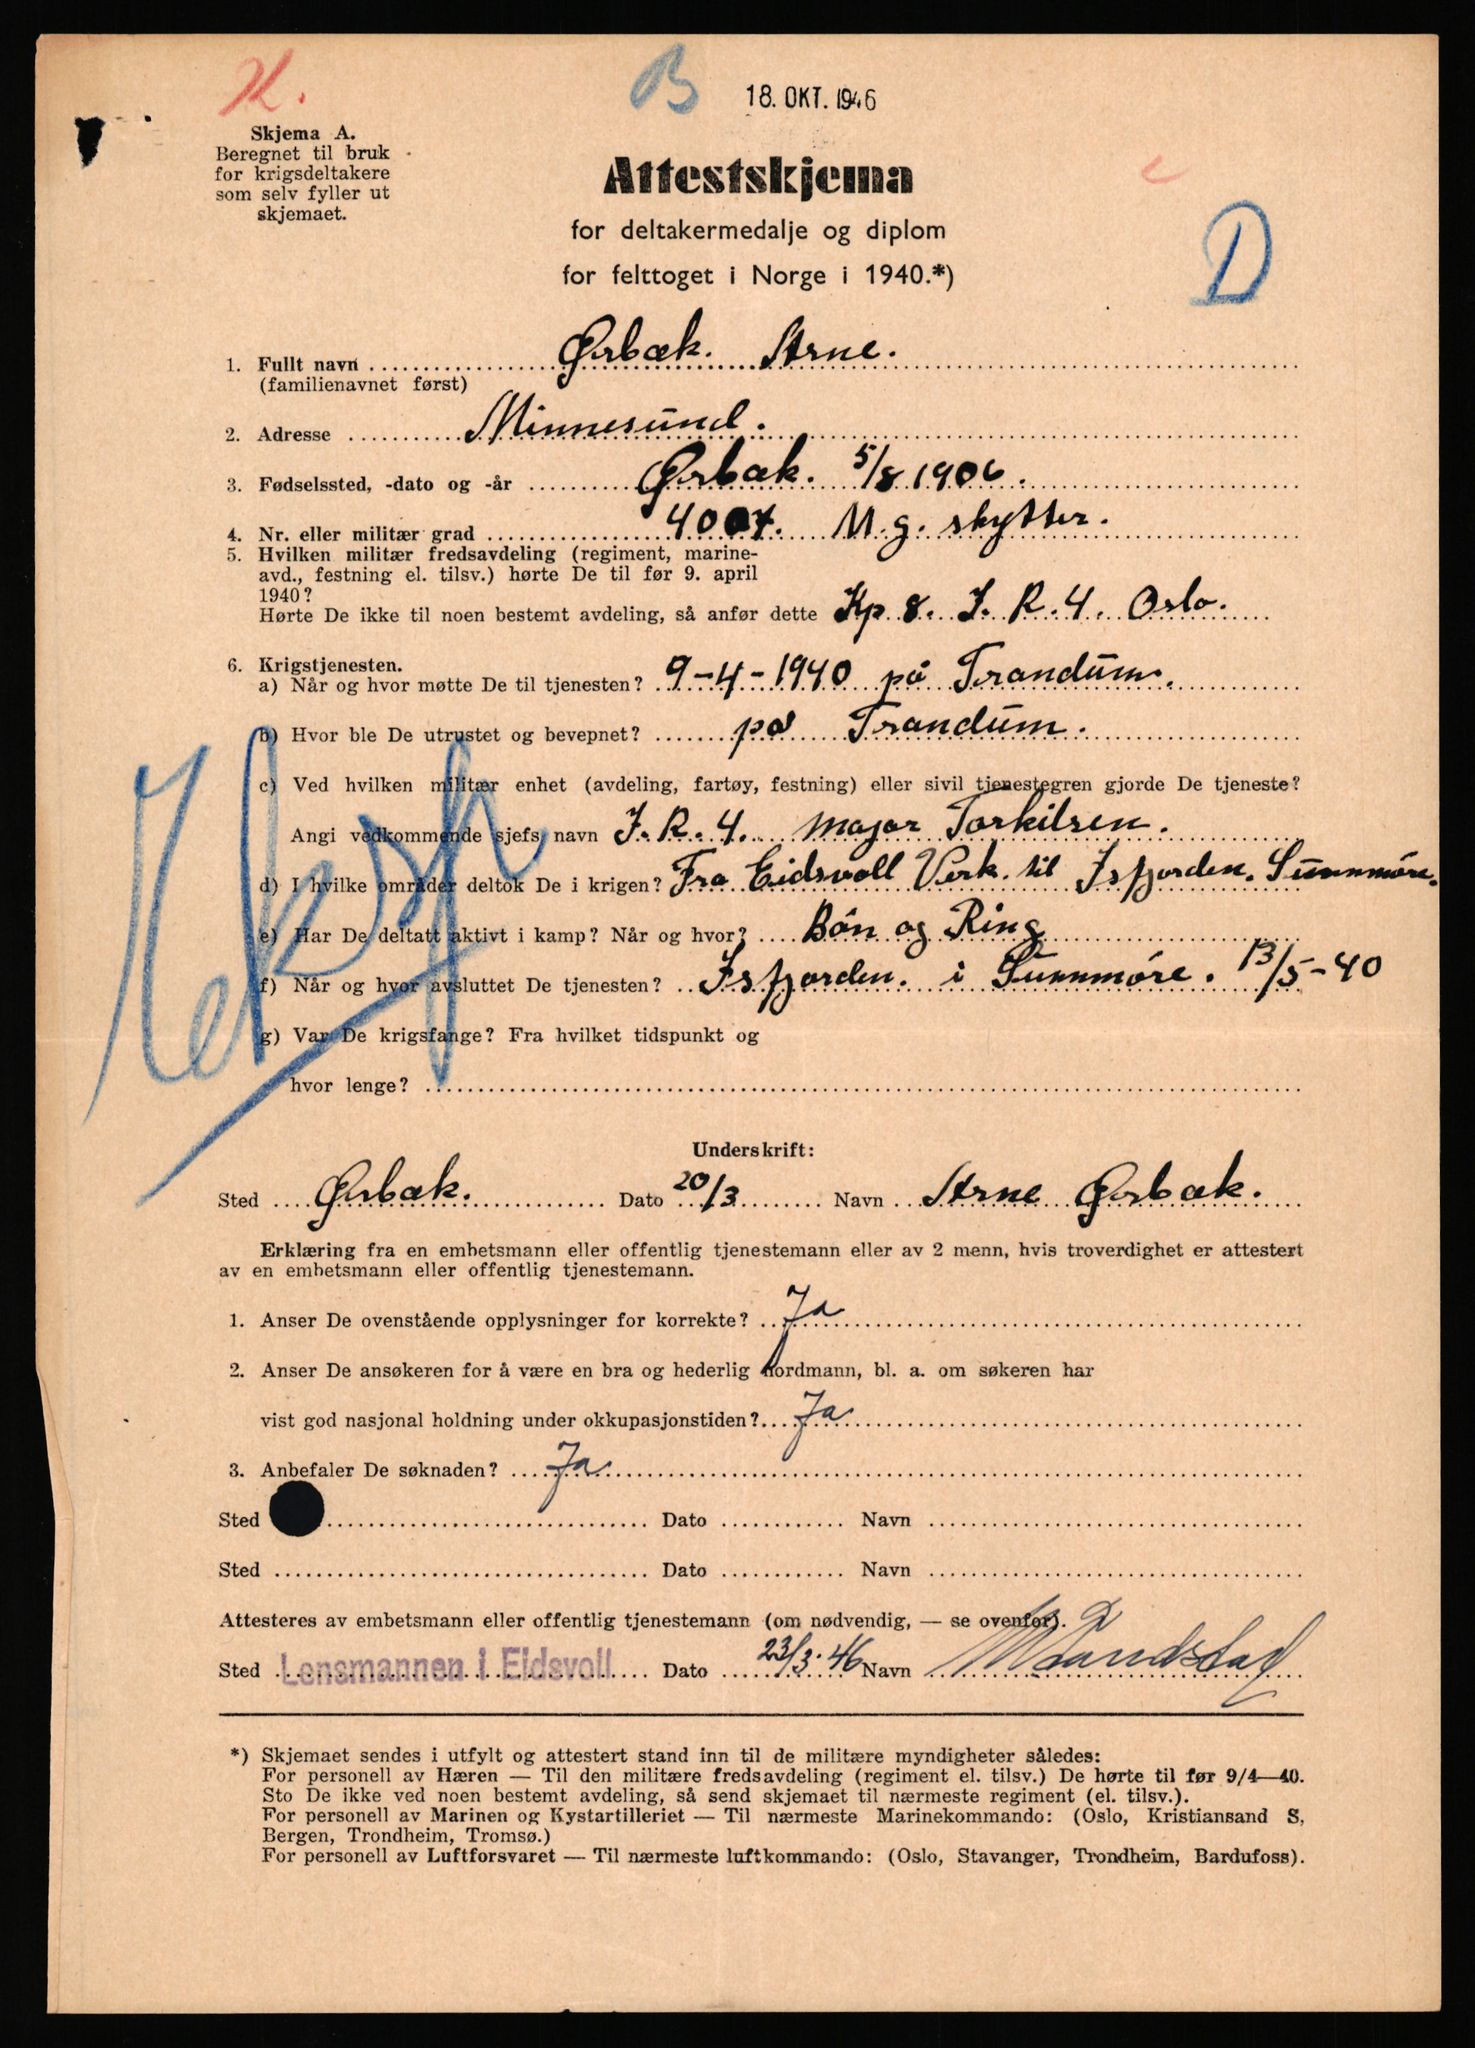 H.
B
18. OKT. 1946
Skjema A.
Beregnet til bruk
for krigsdeltakere
som selv fyller ut
skjemaet.
Attestskjema
for deltakermedalje og diplom
for felttoget i Norge i 1940.*)
D
1. Fullt navn Ørbæk. Arne.
(familienavnet først)
2. Adresse Minnesund.
3. Fødselssted, -dato og -år Ørbæk. 5/8 1906.
4. Nr. eller militær grad 4004. M.g. skytter.
5. Hvilken militær fredsavdeling (regiment, marine-
avd., festning el. tilsv.) hørte De til før 9. april
1940?
Hørte De ikke til noen bestemt avdeling, så anfør dette Kp 8. I. R. 4. Oslo.
6. Krigstjenesten.
a) Når og hvor møtte De til tjenesten? 9-4-1940 på Trandum.
b) Hvor ble De utrustet og bevepnet? på Trandum.
c) Ved hvilken militær enhet (avdeling, fartøy, festning) eller sivil tjenestegren gjorde De tjeneste?
Angi vedkommende sjefs navn I. R. 4. major Torkilsen.
d) I hvilke områder deltok De i krigen? Fra Eidsvoll Verk. til Isfjorden. Sunnmøre.
e) Har De deltatt aktivt i kamp? Når og hvor? Bøn og Ring
f) Når og hvor avsluttet De tjenesten? Isfjorden. i Sunnmøre. 13/5-40
g) Var De krigsfange? Fra hvilket tidspunkt og
hvor lenge?
Underskrift:
Sted Ørbæk. Dato 20/3 Navn Arne Ørbæk.
Erklæring fra en embetsmann eller offentlig tjenestemann eller av 2 menn, hvis troverdighet er attestert
av en embetsmann eller offentlig tjenestemann.
1. Anser De ovenstående opplysninger for korrekte? Ja
2. Anser De ansøkeren for å være en bra og hederlig nordmann, bl. a. om søkeren har
vist god nasjonal holdning under okkupasjonstiden? Ja
3. Anbefaler De søknaden? Ja
Sted Dato Navn
Sted Dato Navn
Attesteres av embetsmann eller offentlig tjenestemann (om nødvendig, — se ovenfor).
Sted Lensmannen i Eidsvoll Dato 23/3.46 Navn
*) Skjemaet sendes i utfylt og attestert stand inn til de militære myndigheter således:
For personell av Hæren — Til den militære fredsavdeling (regiment el. tilsv.) De hørte til før 9/4—40.
Sto De ikke ved noen bestemt avdeling, så send skjemaet til nærmeste regiment (el. tilsv.).
For personell av Marinen og Kystartilleriet — Til nærmeste Marinekommando: (Oslo, Kristiansand S,
Bergen, Trondheim, Tromsø.)
For personell av Luftforsvaret — Til nærmeste luftkommando: (Oslo, Stavanger, Trondheim, Bardufoss).